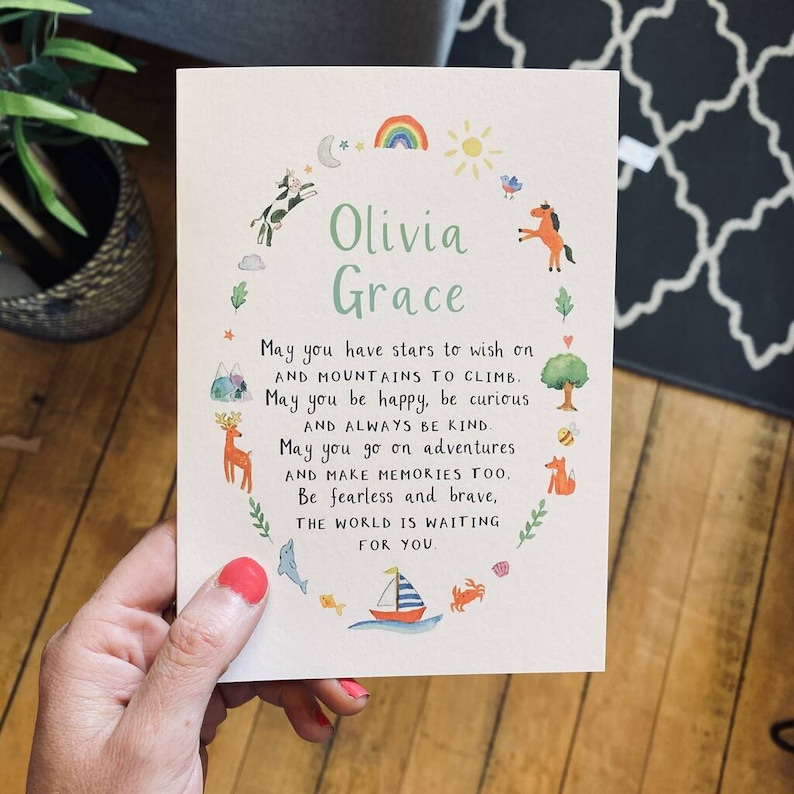 Olivia
Grace
May you have stars to wish on
AND MOUNTAINS TO CLIMB.
May you be happy, be curious
AND ALWAYS BE KIND.
May you go on adventures
AND MAKE MEMORIES TOO,
Be fearless and brave,
THE WORLD IS WAITING
FOR YOU.